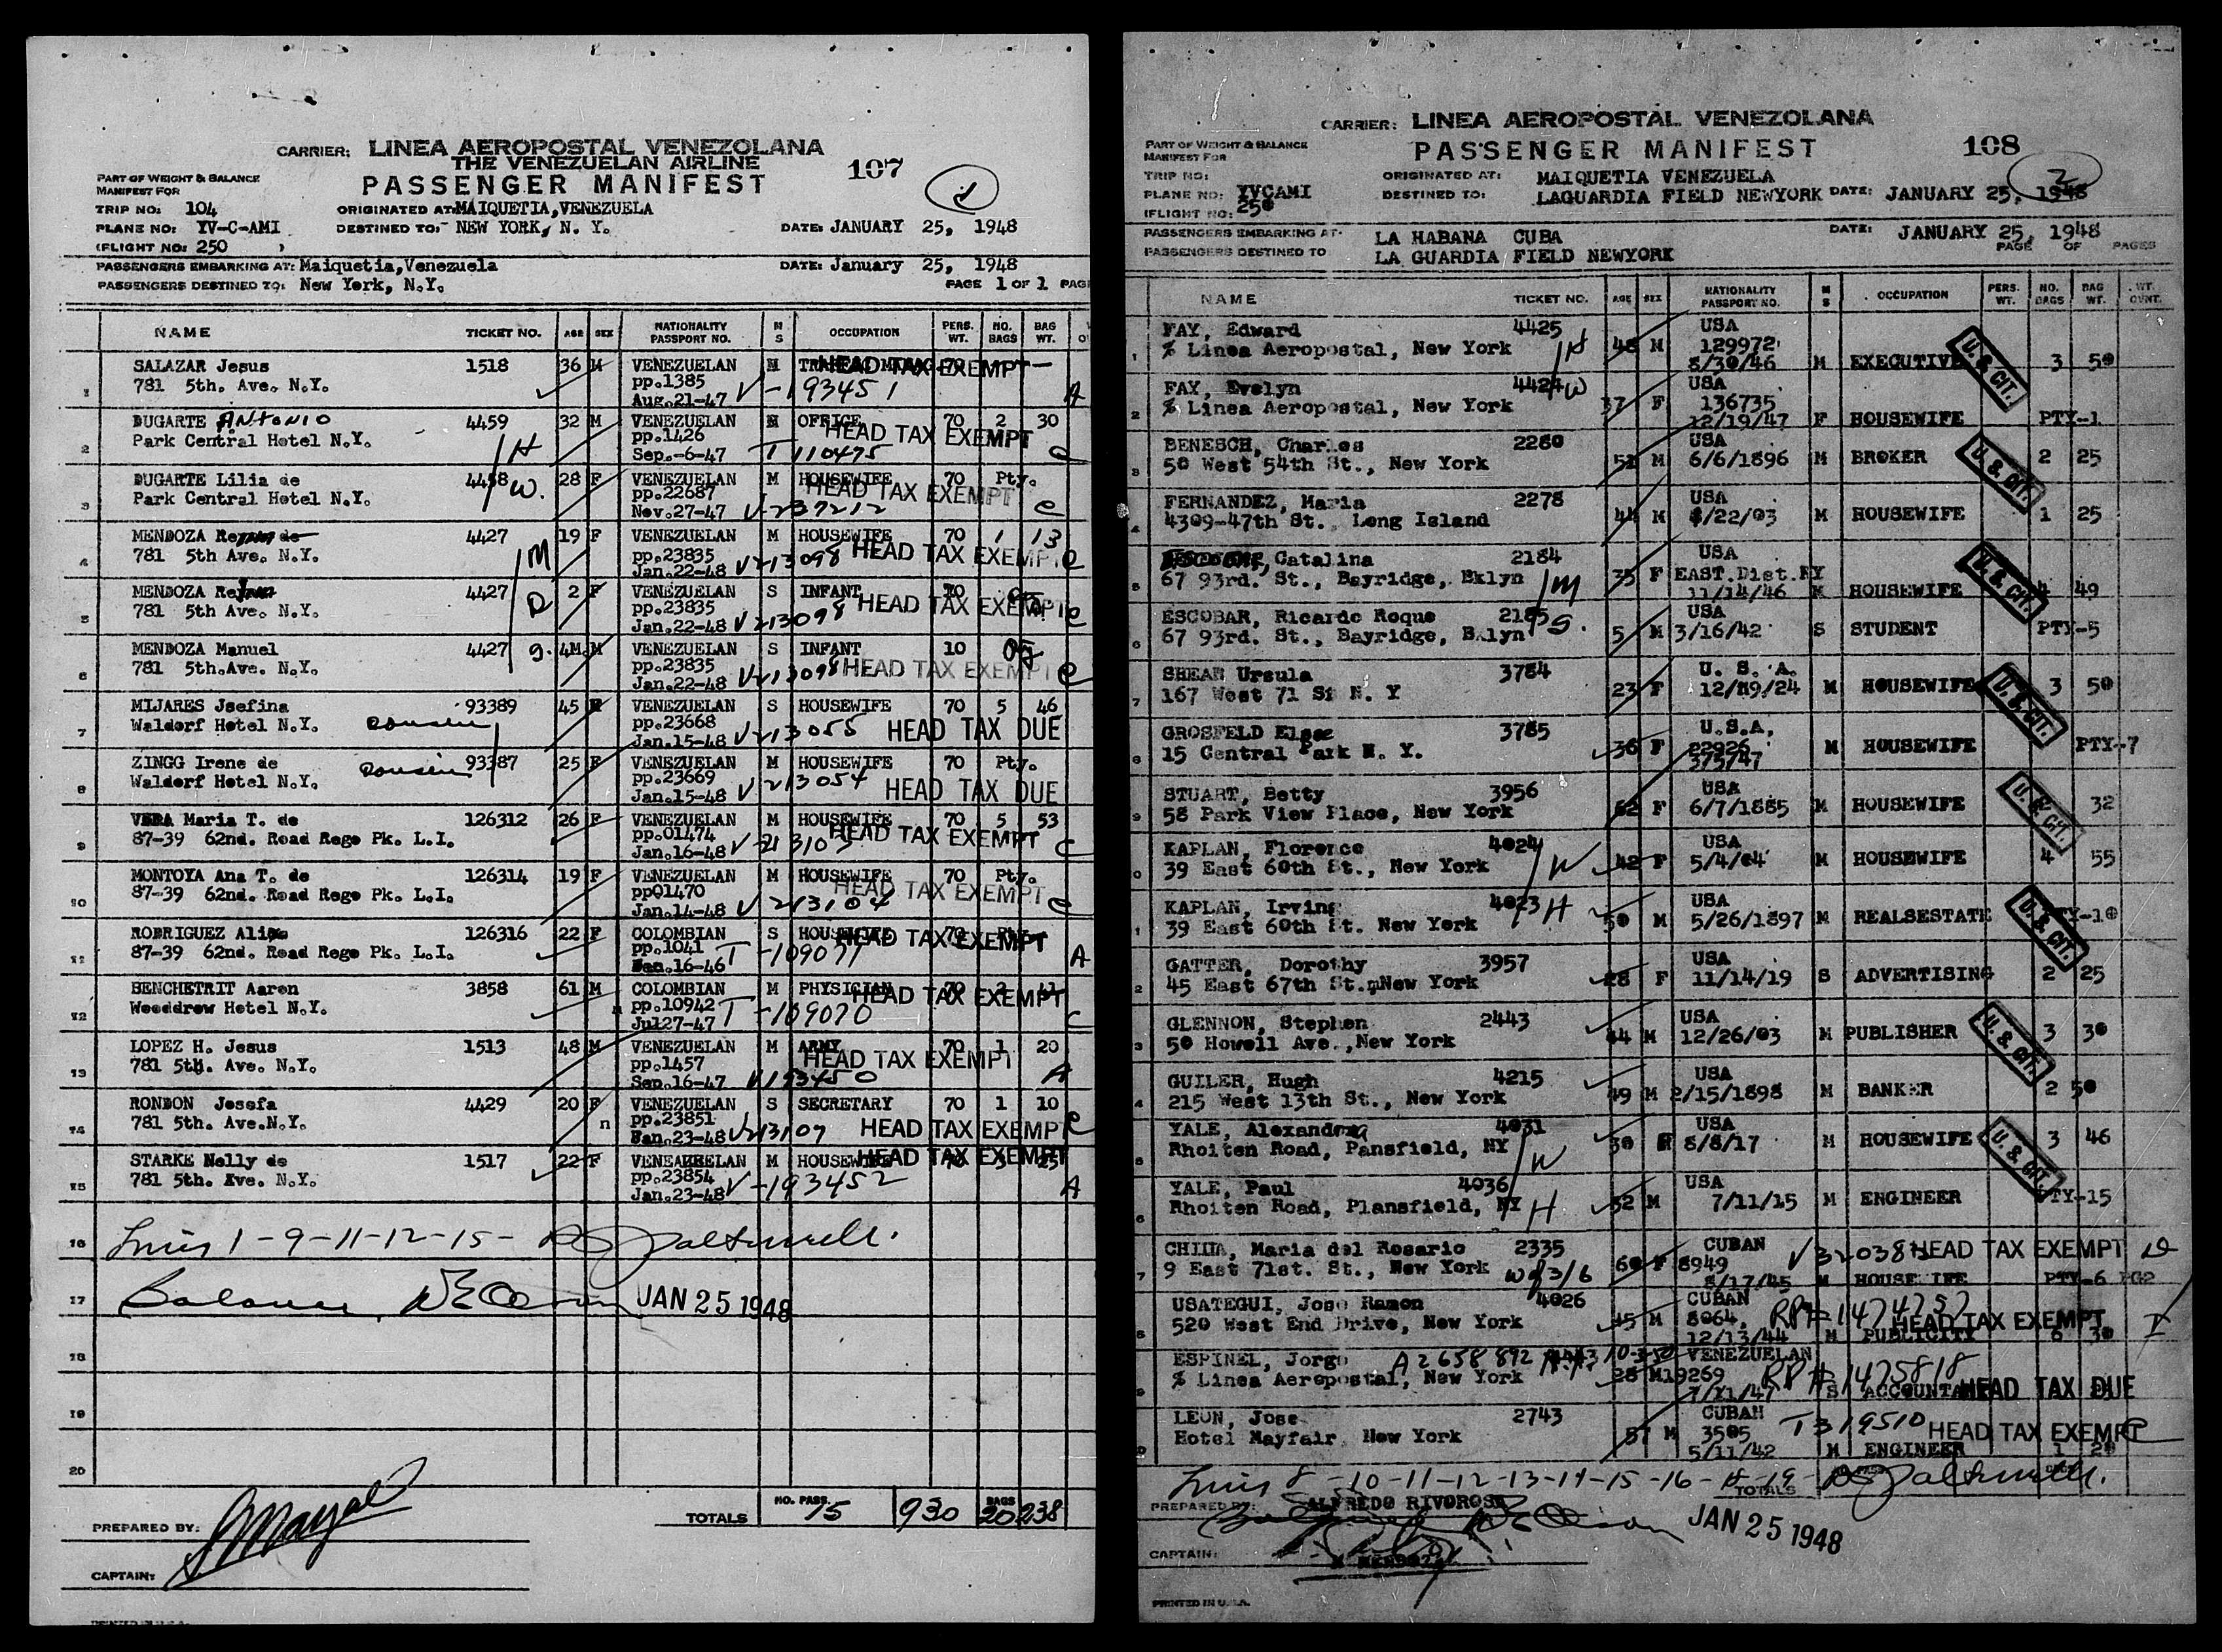 CARRIER: LINEA AEROPOSTAL VENEZOLANA
THE VENEZUELAN AIRLINE
PASSENGER MANIFEST
107
1
PART OF WEIGHT & BALANCE
MANIFEST FOR
TRIP NO: 104 ORIGINATED AT: MAIQUETIA, VENEZUELA
PLANE NO: YV-C-AMI DESTINED TO: NEW YORK, N. Y. DATE: JANUARY 25, 1948
(FLIGHT NO: 250 )
PASSENGERS EMBARKING AT: Maiquetia, Venezuela DATE: January 25, 1948
PASSENGERS DESTINED TO: New York, N.Y. PAGE 1 OF 1 PAG
NAME TICKET NO. AGE SEX NATIONALITY PASSPORT NO. M S OCCUPATION PERS. WT. NO. BAGS BAG WT.
1 SALAZAR Jesus 1518 36 M VENEZUELAN M HEAD TAX EXEMPT
781 5th. Ave. N.Y. pp.1385
Aug.21-47 V-193451 A
2 DUGARTE Antonio 4459 32 M VENEZUELAN M OFFICE 70 2 30
Park Central Hotel N.Y. H pp.1426 HEAD TAX EXEMPT
Sep.-6-47 T 110475 C
3 DUGARTE Lilia de 4458 28 F VENEZUELAN M HOUSEWIFE 70 Pty.
Park Central Hotel N.Y. W. pp.22687 HEAD TAX EXEMPT
Nov.27-47 V-237212 C
4 MENDOZA 4427 19 F VENEZUELAN M HOUSEWIFE 70 1 13
781 5th Ave. N.Y. M pp.23835 HEAD TAX EXEMPT
Jan.22-48 V-213098 C
5 MENDOZA 4427 2 F VENEZUELAN S INFANT
781 5th Ave. N.Y. D pp.23835 HEAD TAX EXEMPT
Jan.22-48 V213098 C
6 MENDOZA Manuel 4427 S. 4M M VENEZUELAN S INFANT 10
781 5th.Ave. N.Y. pp.23835 HEAD TAX EXEMPT
Jan.22-48 V-213098 C
7 MIJARES Josefina 93389 45 F VENEZUELAN S HOUSEWIFE 70 5 46
Waldorf Hotel N.Y. cousin pp.23668 HEAD TAX DUE
Jan.15-48 V-213055
8 ZINGG Irene de 93387 25 F VENEZUELAN M HOUSEWIFE 70 Pty.
Waldorf Hotel N.Y. cousin pp.23669 HEAD TAX DUE
Jan.15-48 V213054
9 VERA Maria T. de 126312 26 F VENEZUELAN M HOUSEWIFE 70 5 53
87-39 62nd. Road Rego Pk. L.I. pp.01474 HEAD TAX EXEMPT
Jan.16-48 C
10 MONTOYA Ana T. de 126314 19 F VENEZUELAN M HOUSEWIFE 70 Pty.
87-39 62nd. Road Rego Pk. L.I. pp01470 HEAD TAX EXEMPT
Jan.14-48 V213104 C
11 RODRIGUEZ 126316 22 F COLOMBIAN S HEAD TAX EXEMPT
87-39 62nd. Road Rego Pk. L.I. pp.1041
16-46 T-109071 A
12 BENCHETRIT Aaron 3858 61 M COLOMBIAN M PHYSICIAN HEAD TAX EXEMPT
Wooddrow Hotel N.Y. pp.10942
Jul27-47 T-109070 C
13 LOPEZ H. Jesus 1513 48 M VENEZUELAN M ARMY 70 1 20
781 5th. Ave. N.Y. pp.1457 HEAD TAX EXEMPT
Sep.16-47 V193450 A
14 RONDON Josefa 4429 20 F VENEZUELAN S SECRETARY 70 1 10
781 5th. Ave.N.Y. pp.23851 HEAD TAX EXEMPT
Jan.23-48 V213107 C
15 STARKE Nelly de 1517 22 F M HOUSEWIFE HEAD TAX EXEMPT
781 5th. Ave. N.Y. pp.23854
Jan.23-48 V-193452 A
16 1-9-11-12-15-
17 Balance JAN 25 1948
18
19
20
TOTALS NO. PASS. 15 930 BAGS 20 238
PREPARED BY:
CAPTAIN:
CARRIER: LINEA AEROPOSTAL VENEZOLANA
PASSENGER MANIFEST
108
2
PART OF WEIGHT & BALANCE
MANIFEST FOR
TRIP NO: ORIGINATED AT: MAIQUETIA VENEZUELA
PLANE NO: YVCAMI DESTINED TO: LAGUARDIA FIELD NEWYORK DATE: JANUARY 25, 1948
(FLIGHT NO: 250
PASSENGERS EMBARKING AT- LA HABANA CUBA DATE: JANUARY 25, 1948
PASSENGERS DESTINED TO LA GUARDIA FIELD NEWYORK PAGE OF PAGES
NAME TICKET NO. AGE SEX NATIONALITY PASSPORT NO. M S OCCUPATION PERS. WT. NO. BAGS BAG WT. WT. OUNT.
1 FAY, Edward 4425 USA
% Linea Aeropostal, New York H 48 M 129972
8/30/46 M EXECUTIVE 3 50
U. S. CIT.
2 FAY, Evelyn 4424 W USA
% Linea Aeropostal, New York 37 F 136735
12/19/47 F HOUSEWIFE PTY-1
3 BENESCH, Charles 2280 USA
50 West 54th St., New York 51 M 6/6/1896 M BROKER 2 25
U. S. CIT.
4 FERNANDEZ, Maria 2278 USA
4309-47th St., Long Island 44 M /22/03 M HOUSEWIFE 1 25
5 Catalina 2184 USA
67 93rd. St., Bayridge, Bklyn M 35 F EAST.Dist.NY
11/14/46 M HOUSEWIFE 4 49
U. S. CIT.
6 ESCOBAR, Ricardo Roque 2185 USA
67 93rd. St., Bayridge, Bklyn S. 5 M 3/16/42 S STUDENT PTY-5
7 SHEAR Ursula 3784 U. S. A.
167 West 71 St N. Y 23 F 12/19/24 M HOUSEWIFE 3 50
U. S. CIT.
8 GROSFELD 3785 U.S.A.
15 Central Park N. Y. 36 F 22926 M HOUSEWIFE PTY-7
3/5/47
9 STUART, Betty 3956 USA
58 Park View Place, New York 62 F 6/7/1885 M HOUSEWIFE 2 32
U. S. CIT.
0 KAPLAN, Florence 4024 USA
39 East 60th St., New York W 42 F 5/4/04 M HOUSEWIFE 4 55
1 KAPLAN, Irving 4023 H USA
39 East 60th St. New York 50 M 5/26/1897 M REALSESTATE PTY-10
U. S. CIT.
2 GATTER, Dorothy 3957 USA
45 East 67th St. New York 28 F 11/14/19 S ADVERTISING 2 25
3 GLENNON, Stephen 2443 USA
50 Howell Ave.,New York 44 M 12/26/03 M PUBLISHER 3 30
U. S. CIT.
4 GUILER, Hugh 4215 USA
215 West 13th St., New York 49 M 2/15/1898 M BANKER 2 50
5 YALE, Alexandra 4031 USA
Rhoiten Road, Pansfield, NY W 30 F 8/8/17 M HOUSEWIFE 3 46
U. S. CIT.
6 YALE, Paul 4036 USA
Rhoiten Road, Plansfield, NY H 32 M 7/11/15 M ENGINEER PTY-15
7 Maria del Rosario 2335 CUBAN HEAD TAX EXEMPT
9 East 71st. St., New York 60 F 8949
8/17/45 M HOUSE IFE PTY-6
8 USATEGUI, Jose Ramon 4026 CUBAN
520 West End Drive, New York 45 M 8064, HEAD TAX EXEMPT
12/13/44 M PUBLICITY 6 30
9 ESPINEL, Jorge A2658892 VENEZUELAN
% Linea Aeropostal, New York 28 M 19269 RP# 1475818
S HEAD TAX DUE
0 LEON, Jose 2743 CUBAN
Hotel Mayfair New York 57 M 3505 T319510 HEAD TAX EXEMPT
5/11/42 M ENGINEER 1
8-10-11-12-13-14-15-16- -19-
TOTALS
PREPARED BY: ALFREDO RIVOROSA
JAN 25 1948
CAPTAIN:
PRINTED IN U.S.A.